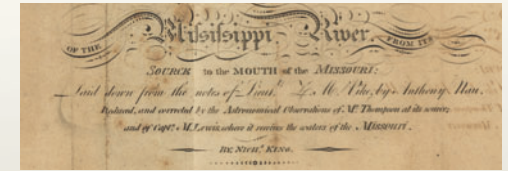 Mifsifsippi River
OF THE FROM ITS
SOURCE to the MOUTH of the MISSOURI:
Laid down from the notes of Lieut.t Z. M. Pike, by Anthony Nau.
Reduced, and corrected by the Astronomical Observations of Mr. Thompson at its source;
and of Capt. M. Lewis, where it receives the waters of the Missouri.
BY NICHs. KING.